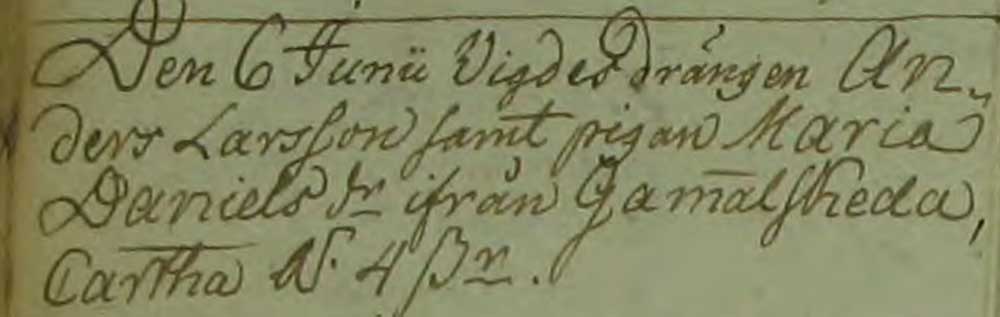 Den 6 Junii Vigdes drängen An„
ders Larsson samt pigan Maria
Daniels dr ifrån Gam̅alskeda,
Cartha N. 4 ßr.